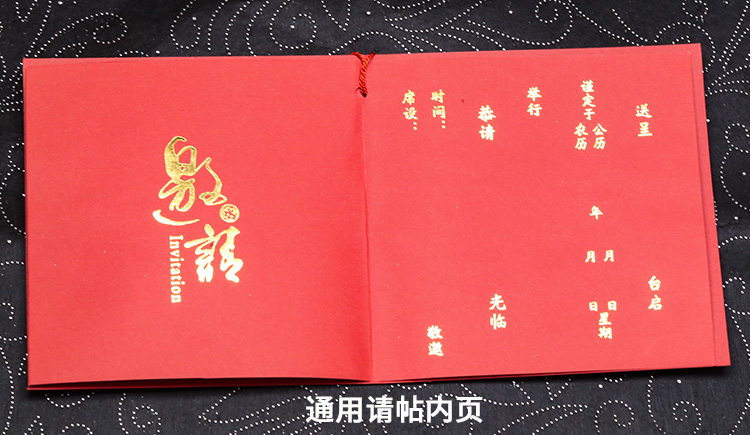 邀請
Invitation
送呈
台启
谨定于
公历
农历
年
月
月
日
日
星期
举行
恭请
光临
时间：
敬邀
席设：
通用请帖内页